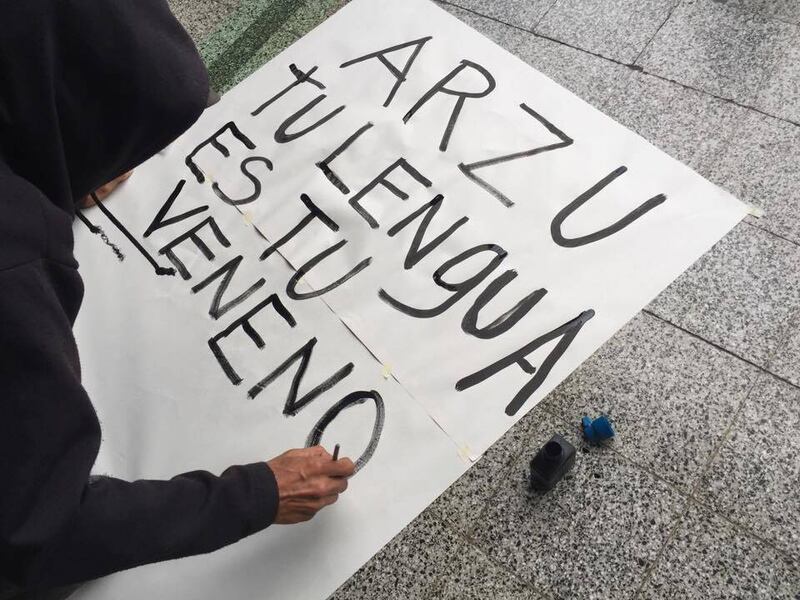 ARZU
TU LENGUA
ES TU
VENENO